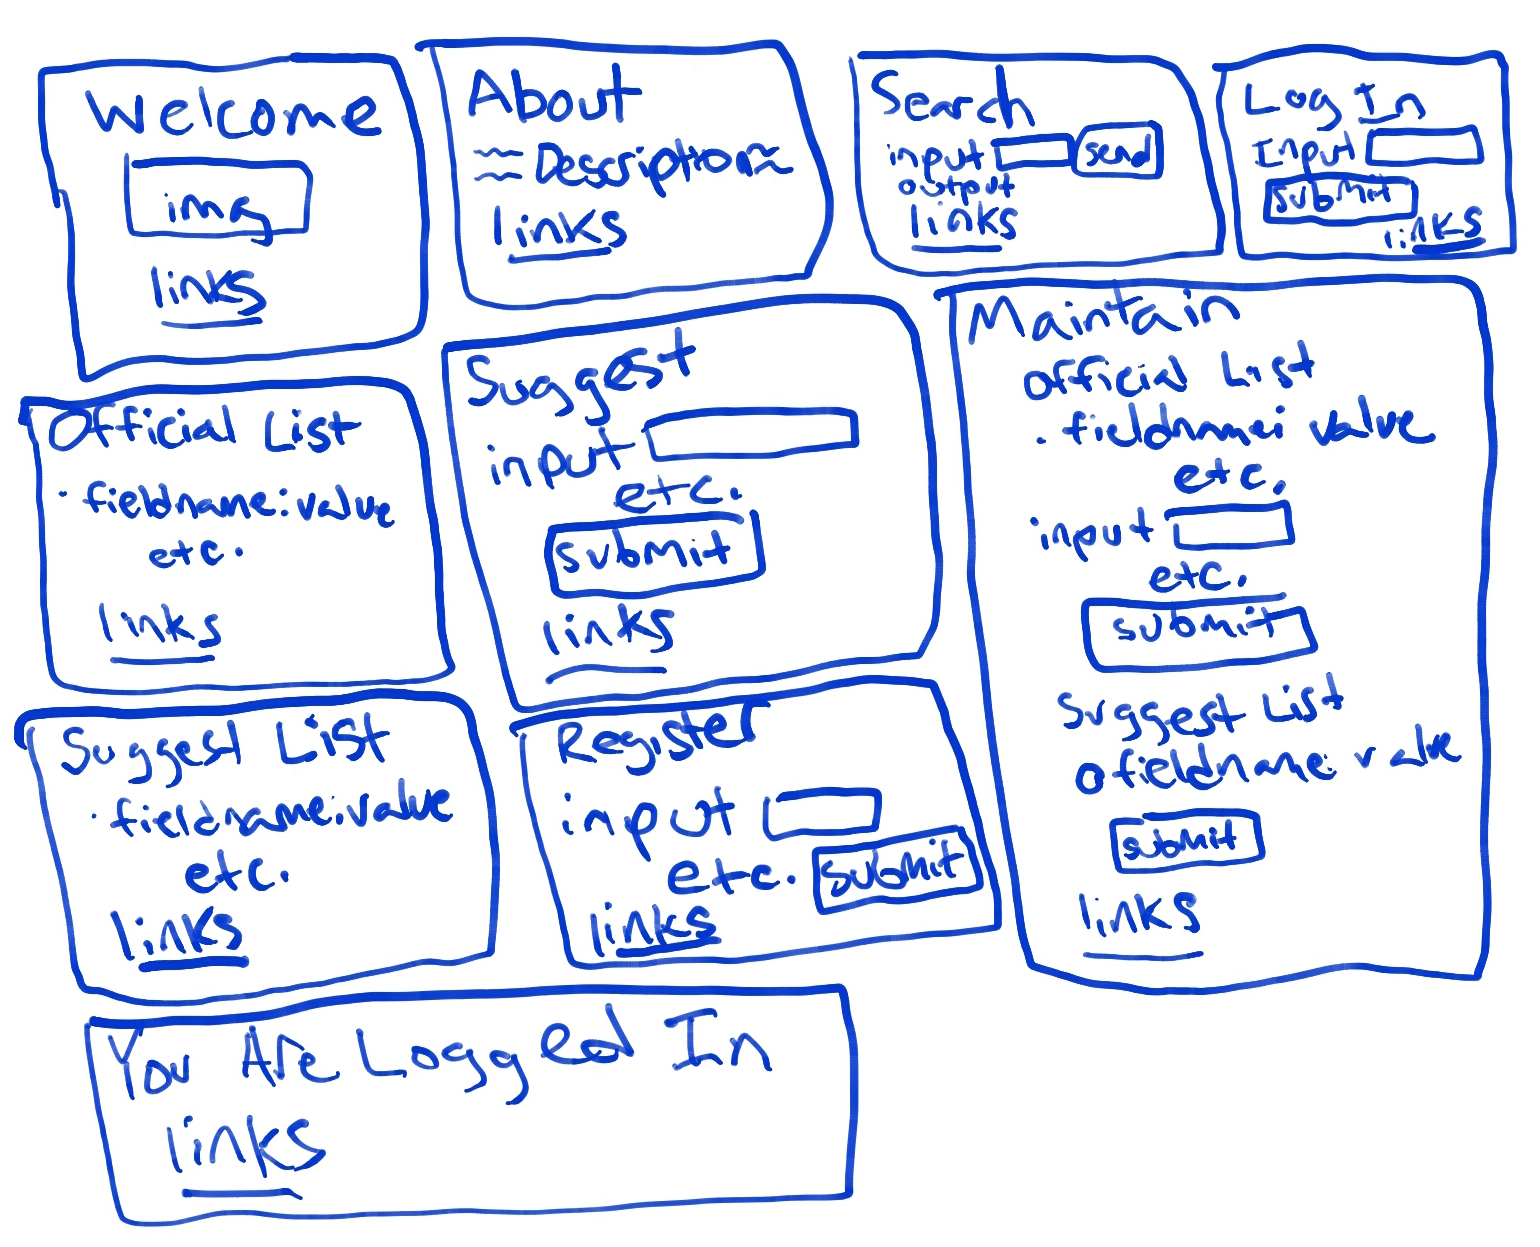 Welcome
img
links
About
≈ Description ≈
links
Search
input send
output
links
Log In
Input
submit
links
Official List
· fieldname: value
etc.
links
Suggest
input
etc.
submit
links
Maintain
official List
· fieldname: value
etc.
input
etc.
submit
Suggest List
o fieldname: value
submit
links
Suggest List
· fieldname: value
etc.
links
Register
input
etc. submit
links
You Are Logged In
links